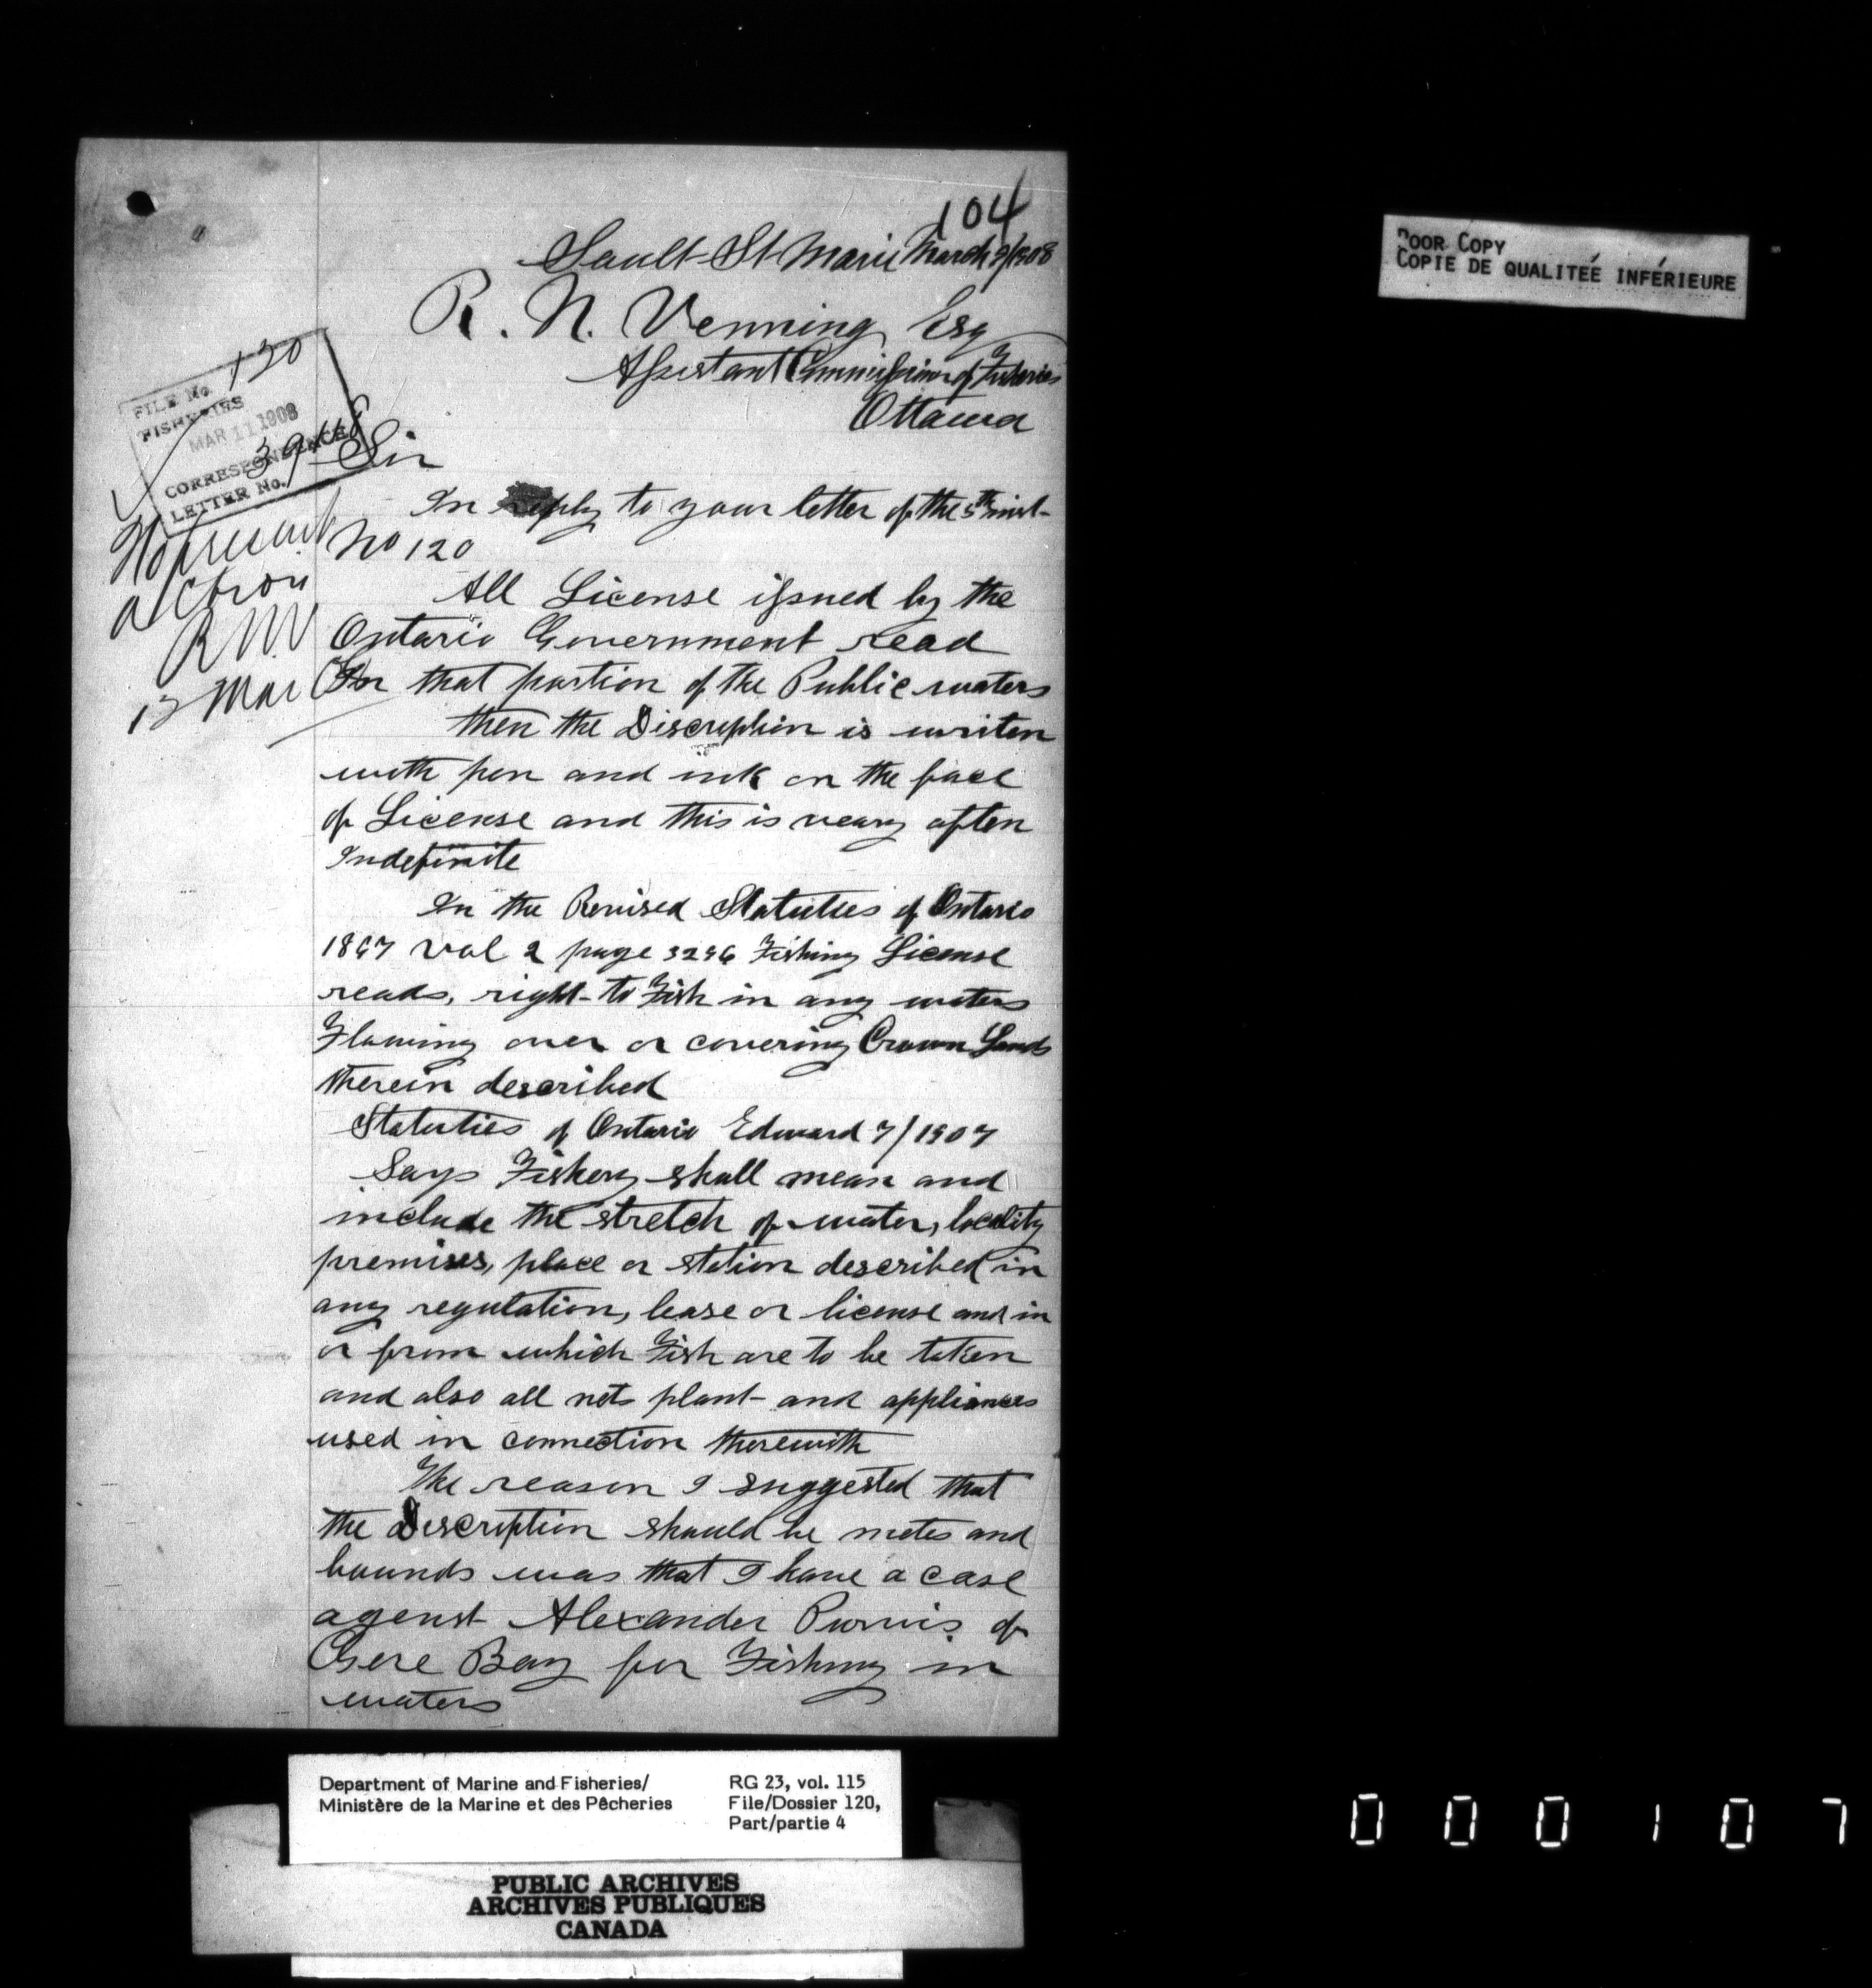 104
Sault St Marie March 9/1908
R. N. Venning Esq
Assistant Commissioner of Fisheries
Ottawa
FILE No. 120
FISHERIES
MAR 11 1908
CORRESPONDENCE
LETTER No.
Sir
In reply to your letter of the 5th inst-
No 120
No present
action
R N V
12 Mar
All License issued by the
Ontario Government read
On that portion of the Public waters
then the Discreption is writen
with pen and ink on the face
of License and this is veary often
Indefinite
In the Revised Statuties of Ontario
1897 vol 2 page 3296 Fishing License
reads, right to Fish in any waters
Flowing over or covering Crown Lands
therein described
Statuties of Ontario Edward 7/1907
Says Fishery shall mean and
include the stretch of water, locality
premises, place or station described in
any regulation, lease or license and in
or from which Fish are to be taken
and also all nets plant and appliances
used in connection therewith
The reason I suggested that
the Description should be metes and
bounds was that I have a case
agenst Alexander Purvis of
Gore Bay for Fishing in
waters
POOR COPY
COPIE DE QUALITEÉ INFÉRIEURE
Department of Marine and Fisheries/
Ministère de la Marine et des Pêcheries
RG 23, vol. 115
File/Dossier 120,
Part/partie 4
PUBLIC ARCHIVES
ARCHIVES PUBLIQUES
CANADA
000107